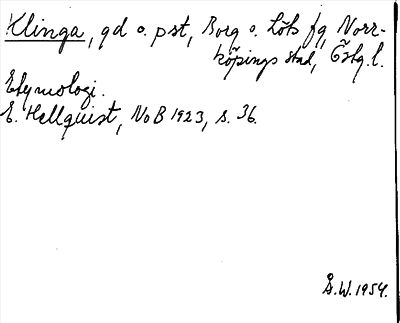 Klinga, gd o. pst, Borg o. Löts fg, Norr-
köpings stad, Östg.l.
Etymologi.
E. Hellquist, NoB 1923, s. 36.
Å.W. 1954.